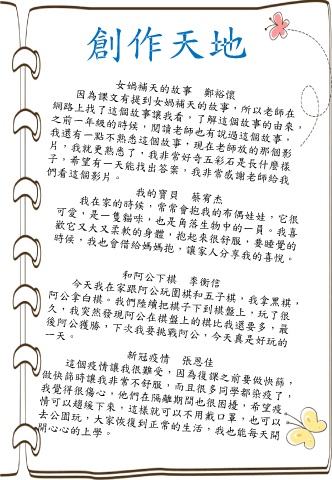 創作天地
女媧補天的故事　鄭裕懷
因為課文有提到女媧補天的故事，所以老師在
網路上找了這個故事讓我看，了解這個故事的由來，
之前一年級的時候，閱讀老師也有說過這個故事，
我還有一點不熟悉這個故事，現在老師放的那個影
片，我就更熟悉了，我非常好奇五彩石是長什麼樣
子，希望有一天能找出答案，我非常感謝老師給我
們看這個影片。
我的寶貝　蔡宥杰
我在家的時候，常常會抱我的布偶娃娃，它很
可愛，是一隻貓咪，也是角落生物中的一員。我喜
歡它又大又柔軟的身體，抱起來很舒服，要睡覺的
時候，我也會借給媽媽抱，讓家人分享我的喜悅。
和阿公下棋　李衡信
今天我在家跟阿公玩圍棋和五子棋，我拿黑棋，
阿公拿白棋。我們陸續把棋子下到棋盤上，玩了很
久，我突然發現阿公在棋盤上的棋比我還要多，最
後阿公獲勝，下次我要挑戰阿公，今天真是好玩的
一天。
新冠疫情　張恩佳
這個疫情讓我很難受，因為復課之前要做快篩，
做快篩時讓我非常不舒服，而且很多同學都染疫了，
我覺得很傷心，他們在隔離期間也很困擾，希望疫
情可以趨緩下來，這樣就可以不用戴口罩，也可以
去公園玩，大家恢復到正常的生活，我也能每天開
開心心的上學。